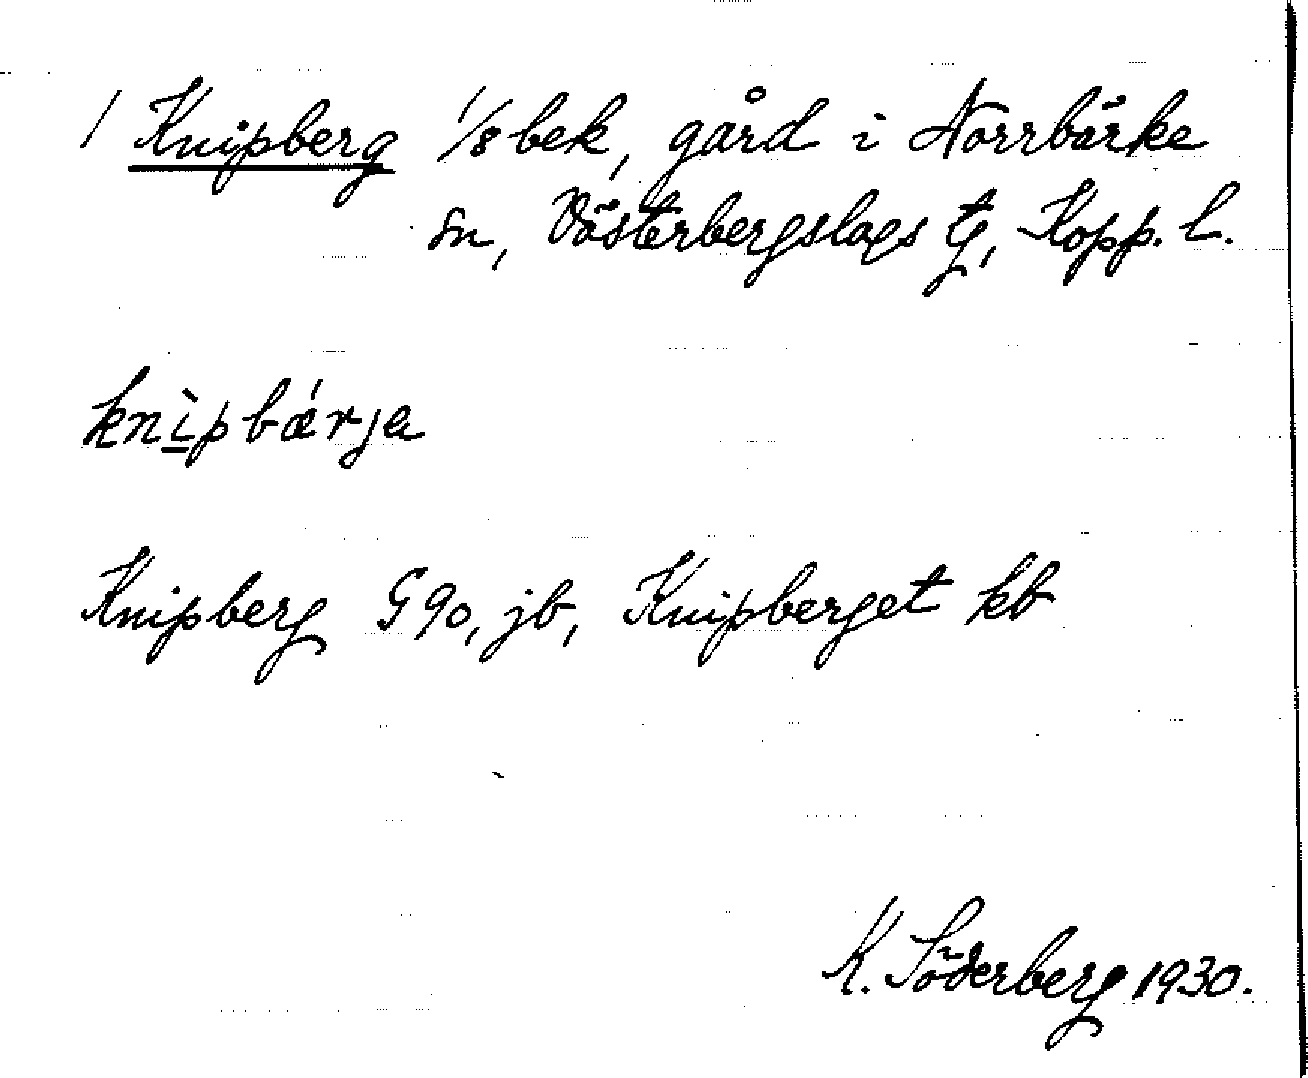 / Knipberg 1/8 bek, gård i Norrbärke
sn, Västerbergslags tg, Kopp. l.
knìpbǽrja
Knipberg G 90, jb, Knipberget kb
K. Söderberg 1930.